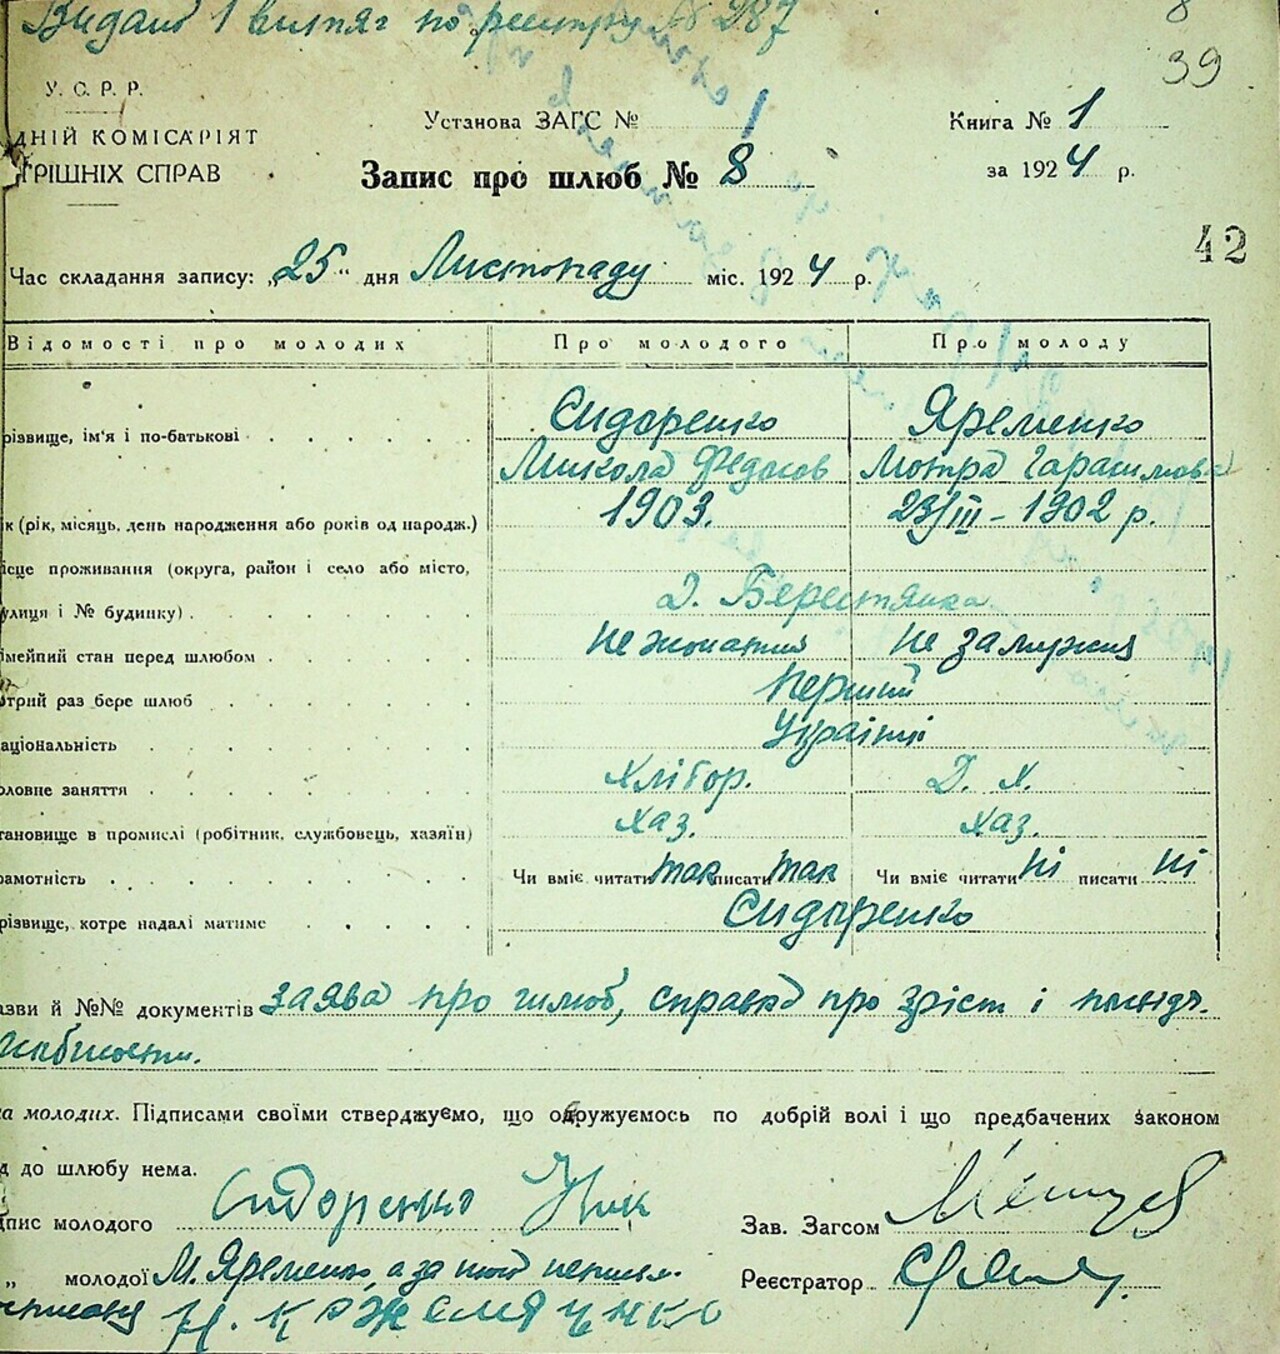 Видано 1 витяг по реєстру № 287
8
39
У. С. Р. Р.
ДНІЙ КОМІСАРІЯТ
ТРІШНІХ СПРАВ
Установа ЗАГС № 1
Книга № 1
Запис про шлюб № 8
за 1924 р.
42
Час складання запису: „25" дня Листопаду міс. 1924 р.
Відомості про молодих Про молодого Про молоду
Сидоренко Яременко
різвище, ім'я і по-батькові
Микола Федосов Мотря Гарасимовa
ік (рік, місяць, день народження або років од народж.) 1903. 23/III – 1902 р.
ісце проживання (округа, район і село або місто,
улиця і № будинку) Д. Берестянка
імейний стан перед шлюбом не жонатий не замужня
отрий раз бере шлюб перший
аціональність Українці
оловне заняття хлібор. Д. Х.
тановище в промислі (робітник, службовець, хазяїн) хаз. хаз.
рамотність Чи вміє читати так писати так Чи вміє читати ні писати ні
різвище, котре надалі матиме Сидоренко
азви й №№ документів заява про шлюб, справка про зріст і
а молодих. Підписами своїми стверджуємо, що одружуємось по добрій волі і що предбачених законом
д до шлюбу нема.
дпис молодого Сидоренко Ник
Зав. Загсом
„ молодої М. Яременко, а за
Реєстратор
Н. Кожемяченко